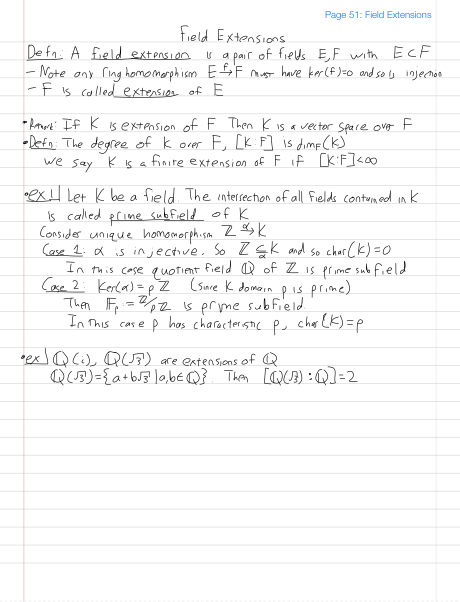 Page 51: Field Extensions
Field Extensions
Defn: A field extension is a pair of fields E,F with E⊂F
- Note any ring homomorphism E →f F must have ker(f)=0 and so is injection
- F is called extension of E
• Remark: If K is extension of F Then K is a vector space over F
• Defn: The degree of K over F, [K:F] is dim_F(K)
we say K is a finite extension of F if [K:F]<∞
• ex) Let K be a field. The intersection of all fields contained in K
is called prime subfield of K
Consider unique homomorphism ℤ →α K
Case 1: α is injective. So ℤ ⊆α K and so char(K)=0
In this case quotient field ℚ of ℤ is prime subfield
Case 2: Ker(α)=pℤ (since K domain p is prime)
Then 𝔽p := ℤ/pℤ is prime subfield.
In this case p has characteristic p, char(K)=p
• ex) ℚ(i), ℚ(√3) are extensions of ℚ
ℚ(√3)={a+b√3 |a,b∈ℚ}. Then [ℚ(√3):ℚ]=2